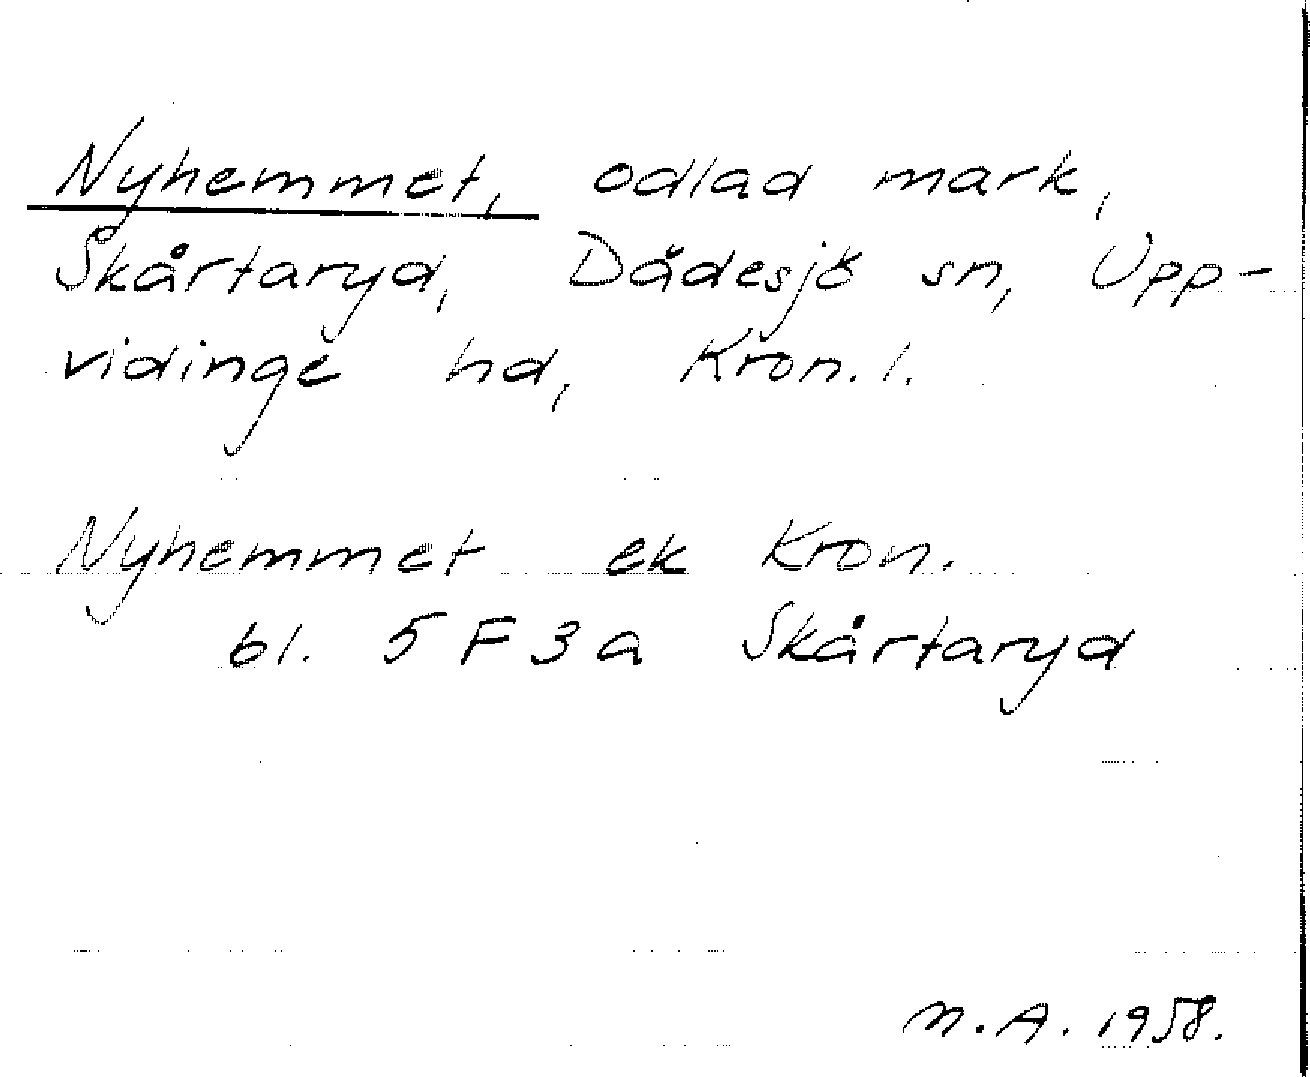 Nyhemmet, odlad mark,
Skårtaryd, Dädesjö sn, Upp-
vidinge hd, Kron. l.
Nyhemmet ek Kron.
bl. 5 F 3 a Skårtaryd
M. A. 1958.